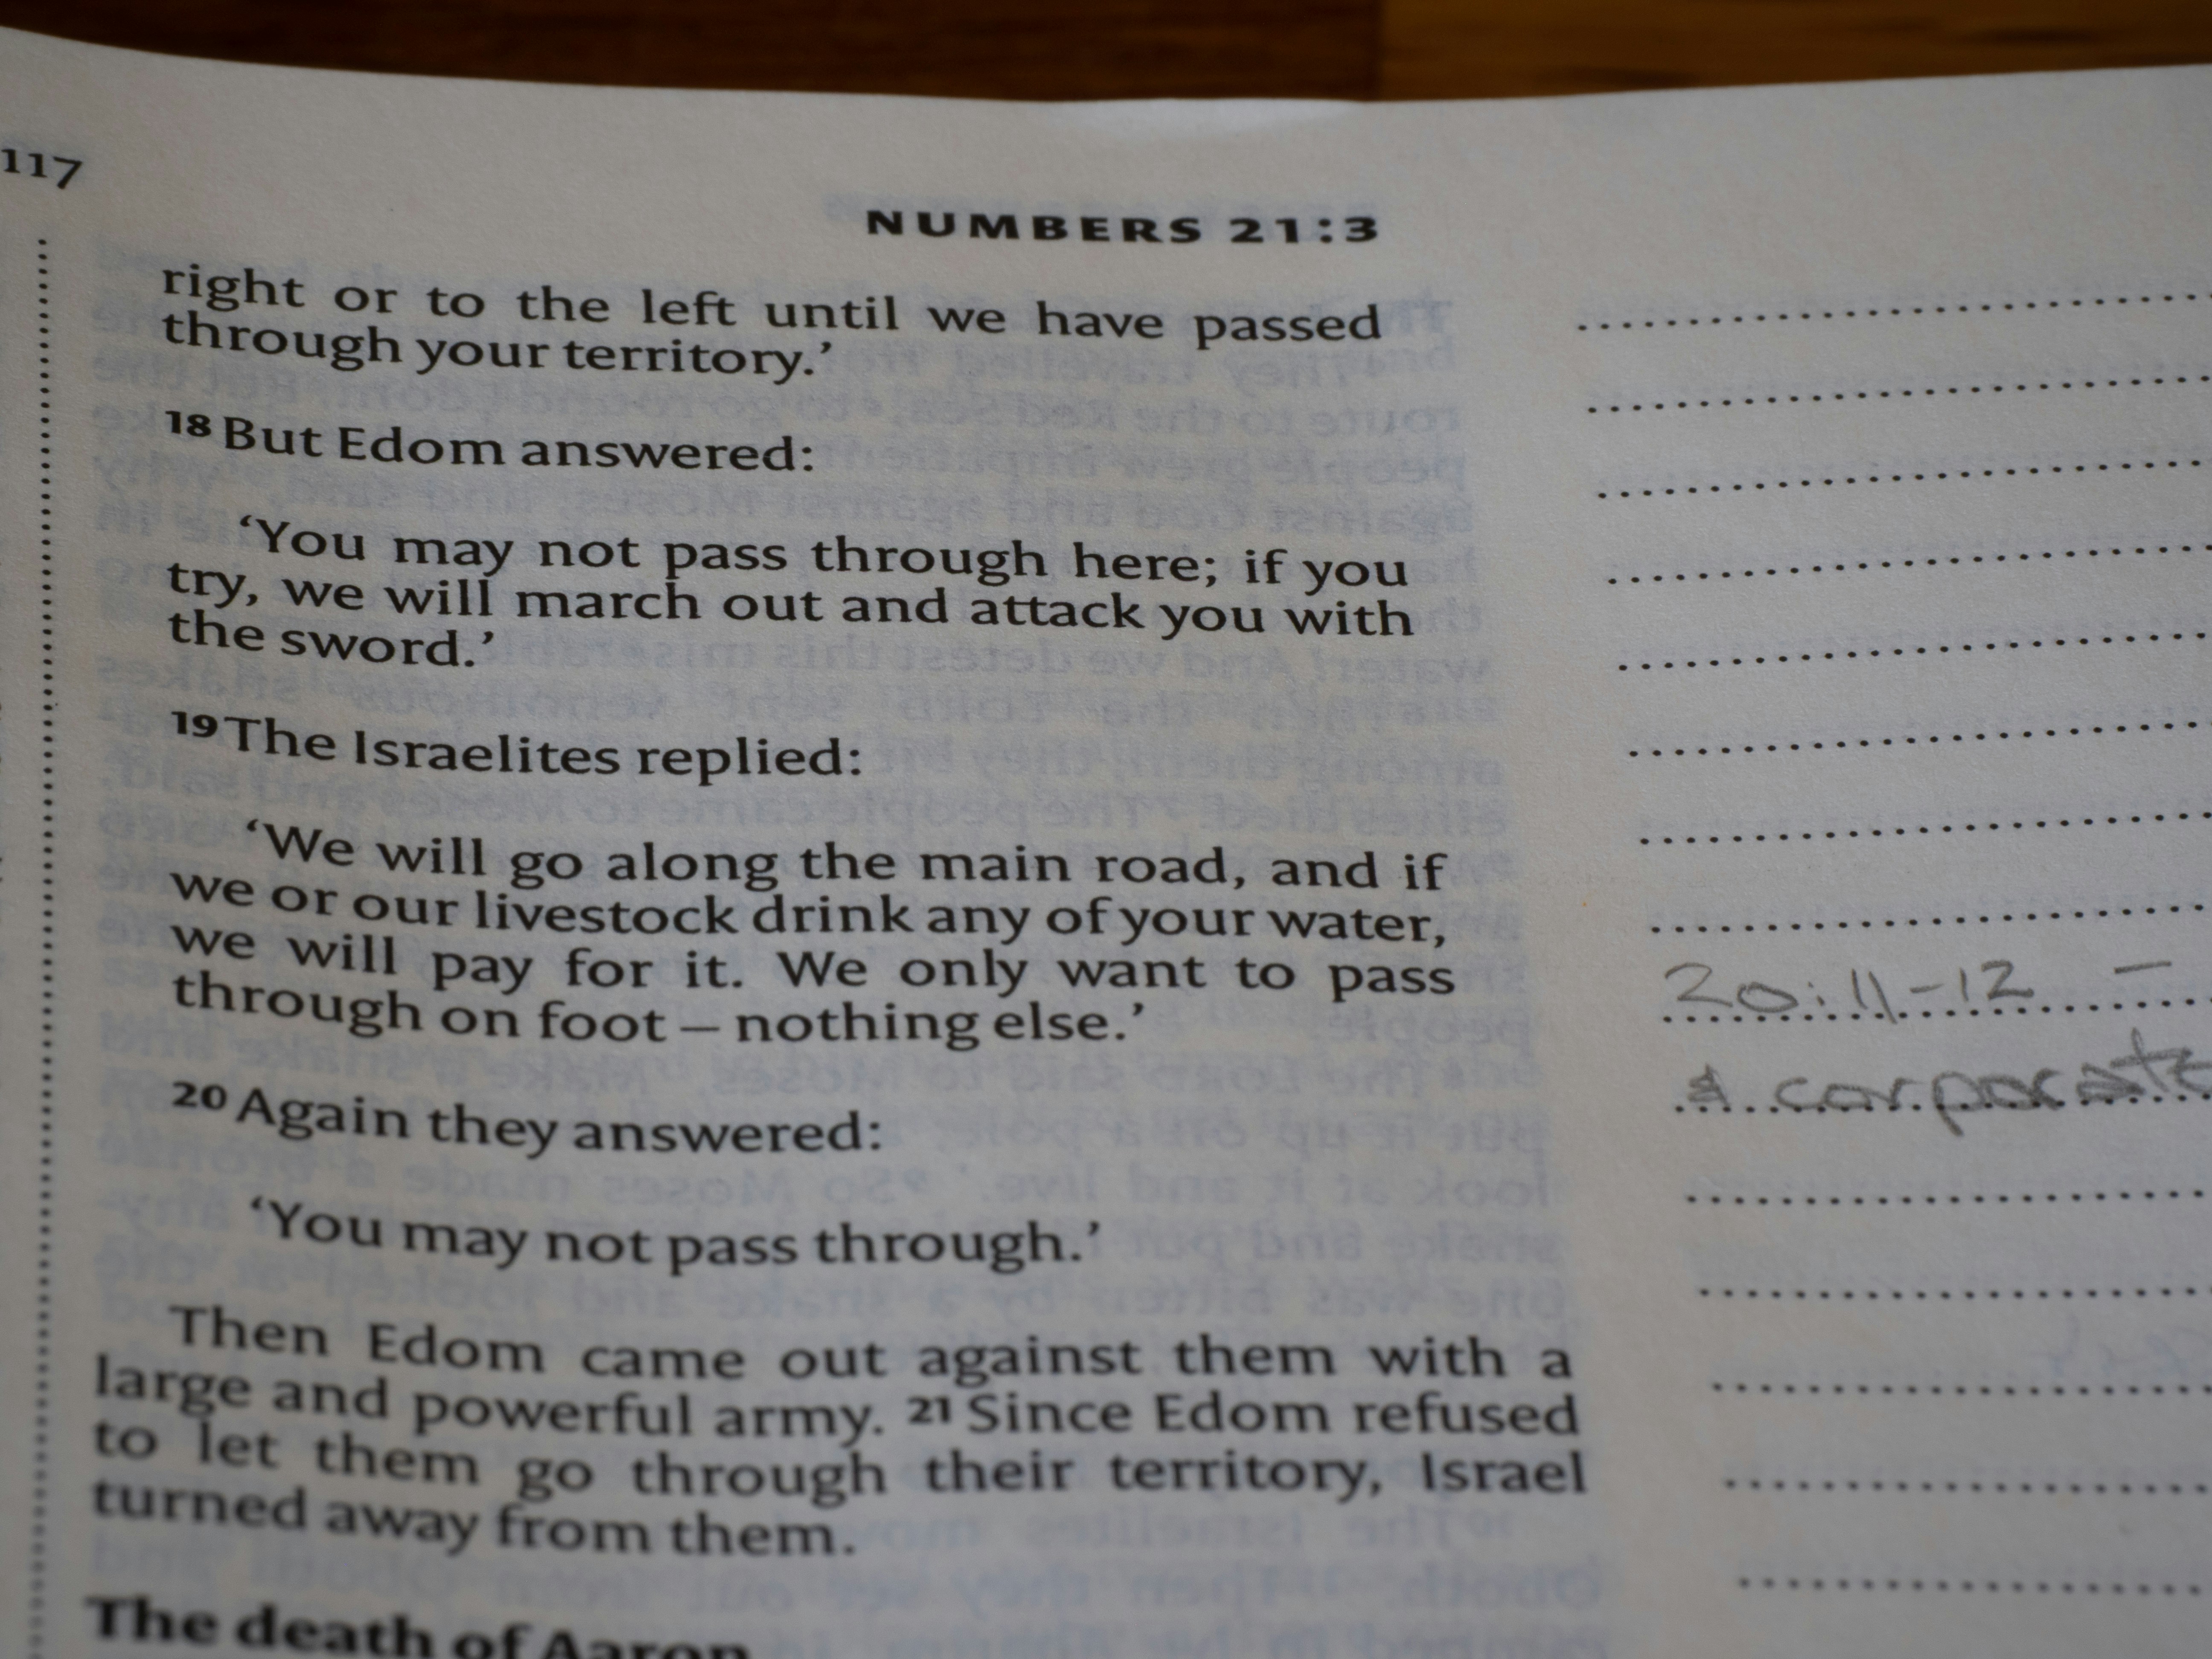 117
NUMBERS 21:3
right or to the left until we have passed
through your territory.’
18 But Edom answered:
‘You may not pass through here; if you
try, we will march out and attack you with
the sword.’
19 The Israelites replied:
‘We will go along the main road, and if
we or our livestock drink any of your water,
we will pay for it. We only want to pass
through on foot – nothing else.’
20 Again they answered:
‘You may not pass through.’
Then Edom came out against them with a
large and powerful army. 21 Since Edom refused
to let them go through their territory, Israel
turned away from them.
The death of Aaron
20:11-12 –
& corporate